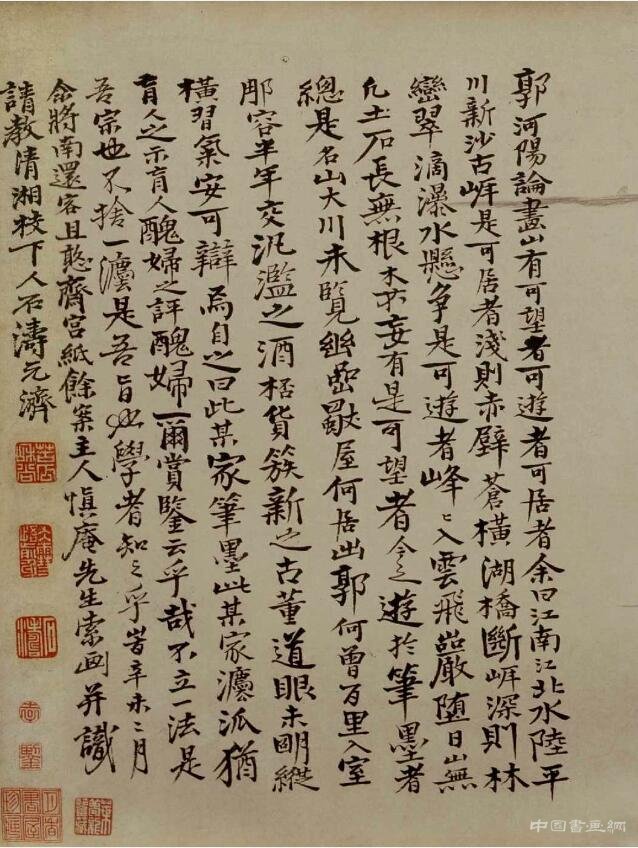 郭河陽論畫山有可望者可遊者可居者余曰江南江北水陸平
川新沙古岸是可居者淺則赤壁蒼橫湖橋斷岸深則林
巒翠滴瀑水懸爭是可遊者峰々入雲飛巖墮日山無
凡土石長無根木不妄有是可望者今之遊於筆墨者
總是名山大川未覽幽巖獨屋何居出郭何曾百里入室
那容半年交汎濫之酒柸貨簇新之古董道眼未明縱
橫習氣安可辯焉自之曰此某家筆墨此某家灋派猶
盲人之示盲人醜婦之評醜婦爾賞鑒云乎哉不立一法是
吾宗也不捨一灋是吾旨也學者知之乎旹辛未二月
余將南還客且憨齋宮紙餘案主人慎庵先生索画并識
請教清湘枝下人石濤元濟
中国書画網